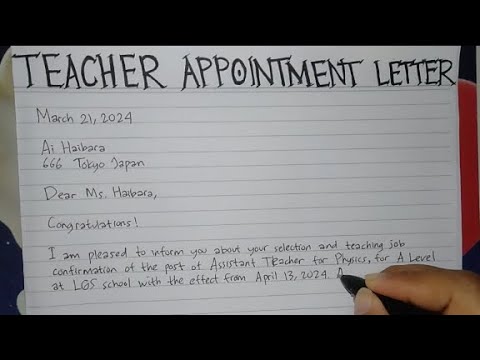 TEACHER APPOINTMENT LETTER
March 21, 2024
Ai Haibara
666 Tokyo Japan
Dear Ms. Haibara,
Congratulations!
I am pleased to inform you about your selection and teaching job
confirmation of the post of Assistant Teacher for Physics, for A Level
at LGS school with the effect from April 13, 2024. A